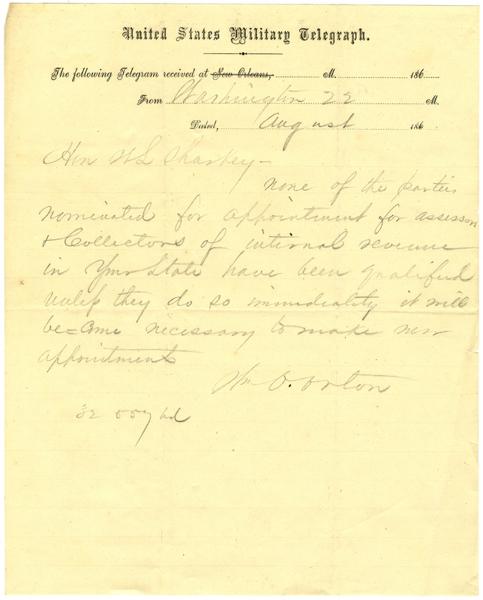 United States Military Telegraph.
The following Telegram received at New Orleans, M. 186
From Washington 22 M.
Dated, August 186
Hon W L Sharkey-
none of the parties
nominated for appointment for assessors
& Collectors of internal revenue
in Your State have been qualified
unless they do so immediately it will
be=come necessary to make new
appointments
Wm O. Orton
32